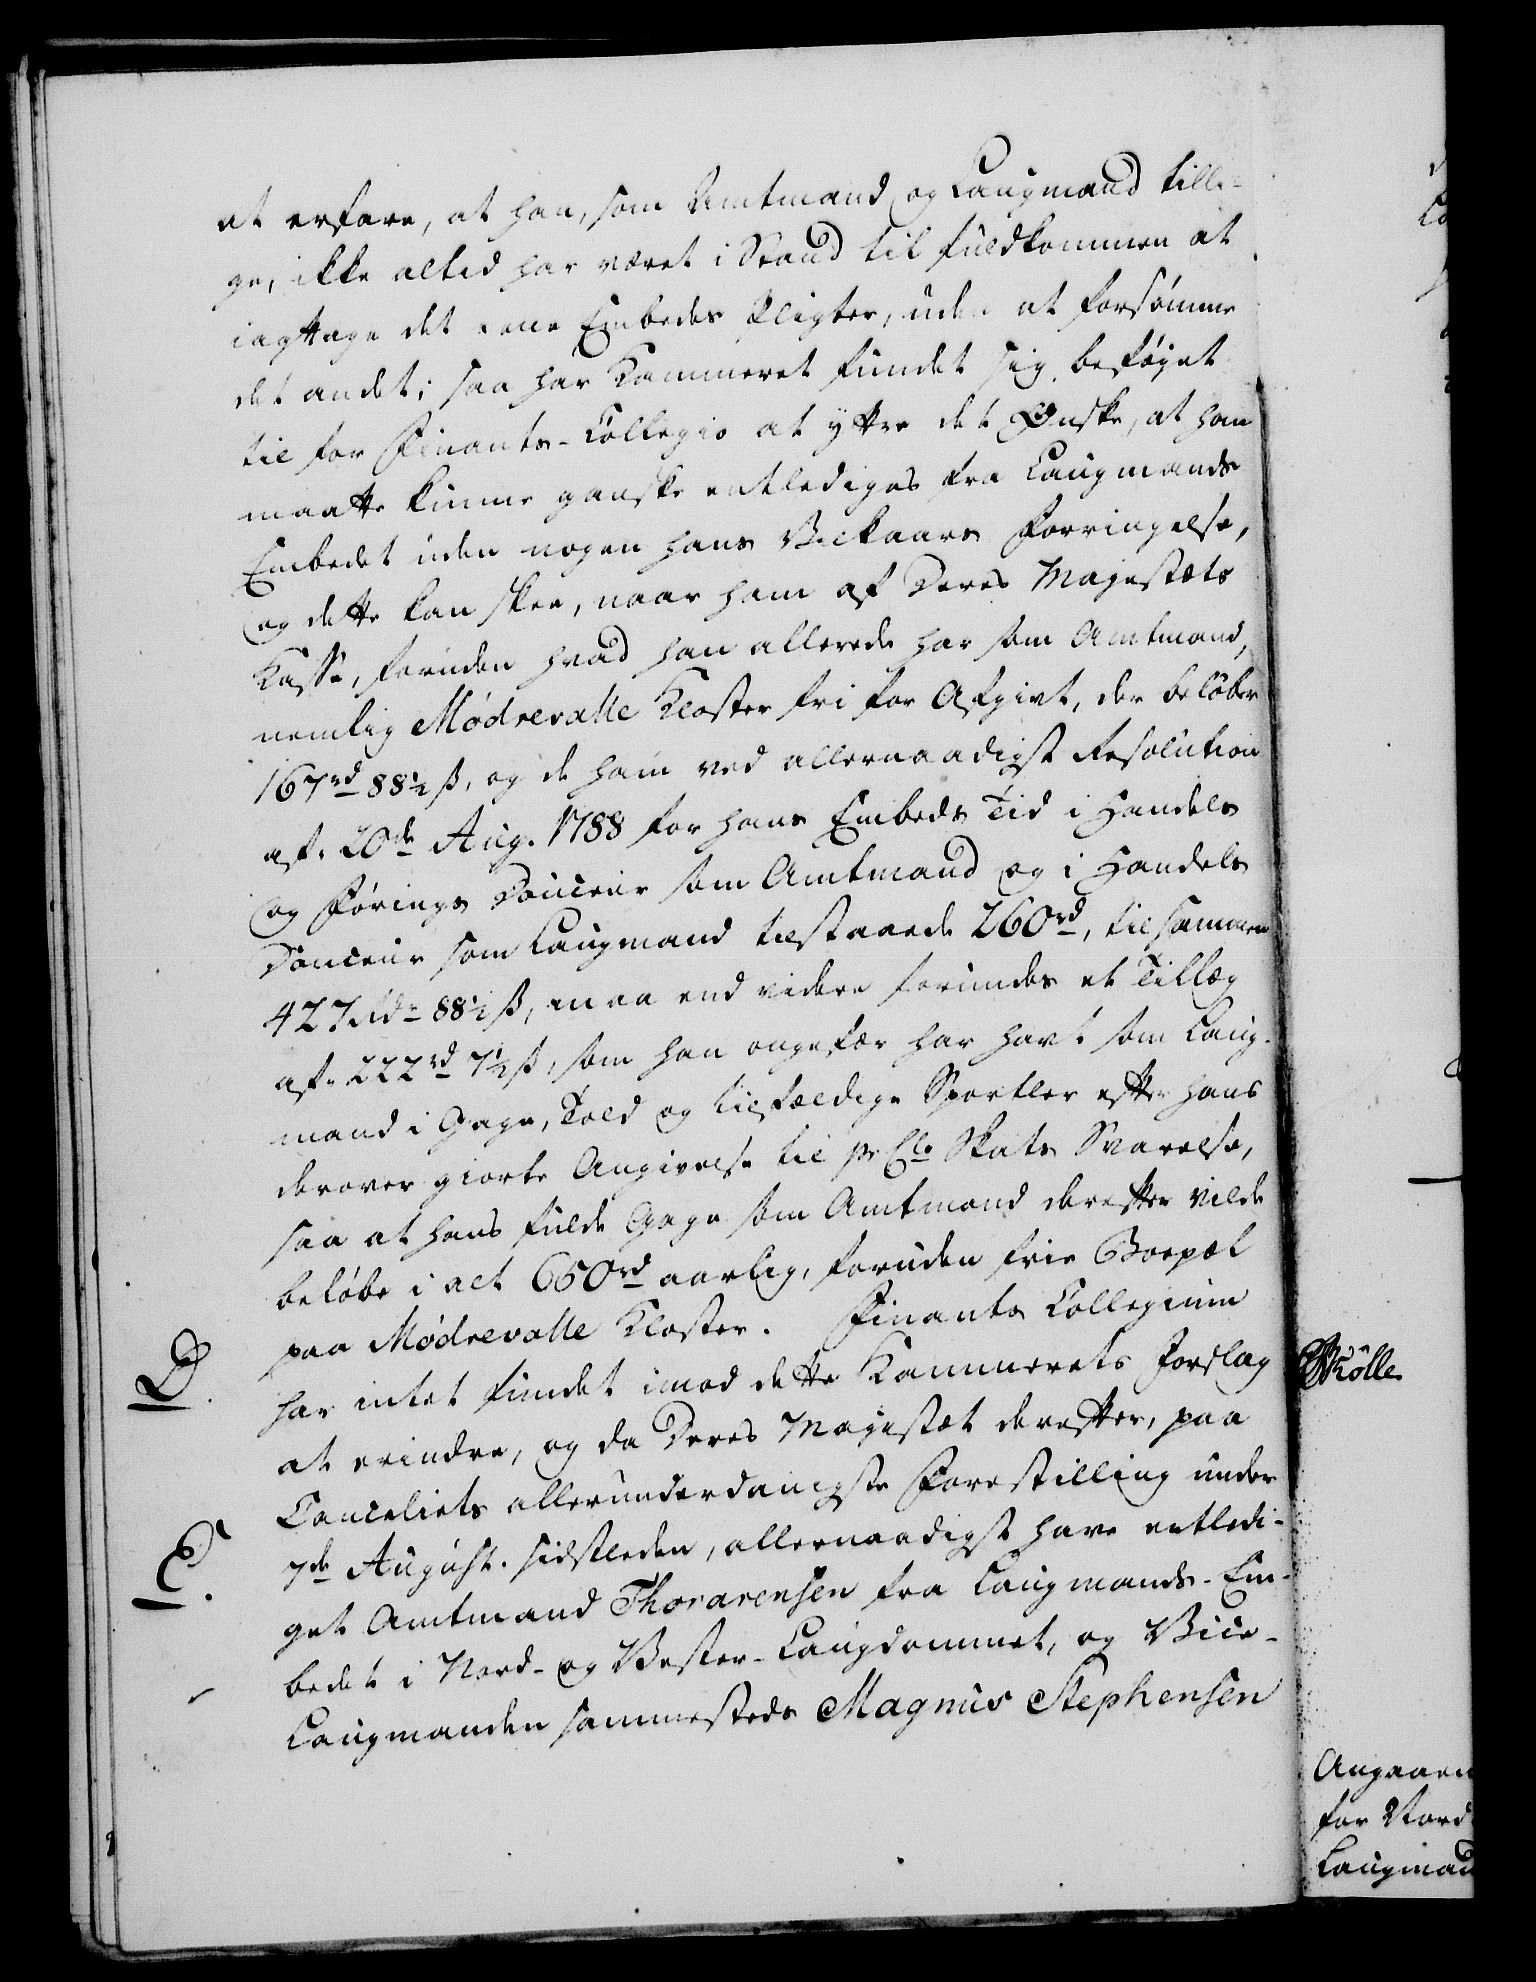 at erfare, at han, som Amtmand og Laugmand tille-
ge, ikke altid har været i Stand til fuldkommen at
iagttage det eene Embedes Pligter, uden at forsømme
det andet; saa har Kammeret fundet sig beføiet
til for Finants-Collegio at yttre det Ønske, at han
maatte kunne ganske entlediges fra Laugmands
Embedet uden nogen hans Vilkaars Forringelse,
og dette kan skee, naar ham af Deres Majestæts
Kasse, foruden hvad han allerede har som Amtmand,
nemlig Mødrevalle Kloster fri for Afgivt, der beløber
167rd 88½ ß, og de ham ved allernaadigst Resolution
af 20de Aug. 1788 for hans Embeds Tid i Handels
og Førings Douceur som Amtmand og i Handels
Douceur som Laugmand tilstaaede 260rd, tilsammen
427rd 88½ ß, maa end videre forundes et Tillæg
af 222rd 7½ ß, som han ongefær har havt som Laug-
mand i Gage, Told og tilfældige Sportler efter hans
derover giorte Angivelse til pr Ct. Skats Svarelse,
saa at hans fulde Gage som Amtmand derefter vilde
beløbe i alt 650rd aarlig, foruden frie Boepæl
paa Mødrevalle Kloster. Finants Collegium
D.
har intet fundet imod dette Kammerets Forslag
at erindre, og da Deres Majestæt derefter, paa
Cancelliets allerunderdanigste Forestilling under
E.
7de August sidstleden, allernaadigst have entledi-
get Amtmand Thorarensen fra Laugmands-Em-
bedet i Nord- og Vester-Laugdømmet, og Vice-
Laugmanden sammesteds Magnus Stephensen
Angaaen
for Nord
Laugman